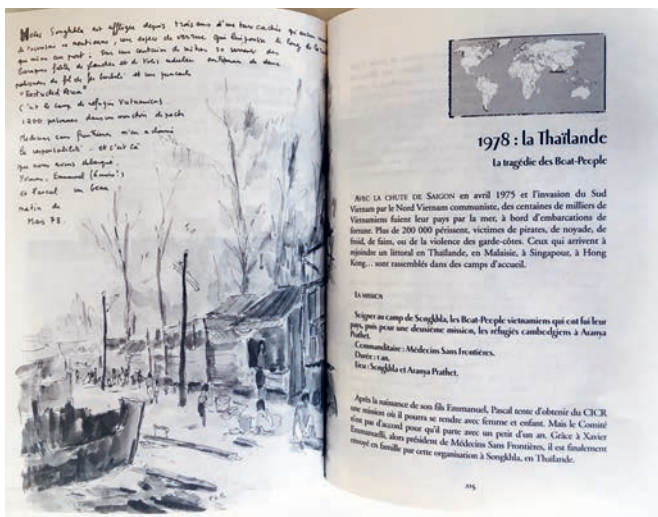 Notre Songkhla est affligée depuis trois ans d'une
de
qui mène au port : Sur une centaine de mètres se
baraques faites de planches et de tôles
de fil de fer barbelé et une pancarte
"Restricted Area"
C'est le camp de réfugiés Vietnamiens.
1200 personnes dans un
Médecins sans frontières m'en a donné
la responsabilité - et c'est là
que nous avons débarqué,
Emmanuel
et Pascal un beau
matin de
Mars 78.
1978 : la Thaïlande
La tragédie des Boat-People
AVEC LA CHUTE DE SAIGON en avril 1975 et l'invasion du Sud
Vietnam par le Nord Vietnam communiste, des centaines de milliers de
Vietnamiens fuient leur pays par la mer, à bord d'embarcations de
fortune. Plus de 200 000 périssent, victimes de pirates, de noyade, de
froid, de faim, ou de la violence des garde-côtes. Ceux qui arrivent à
rejoindre un littoral en Thaïlande, en Malaisie, à Singapour, à Hong
Kong… sont rassemblés dans des camps d'accueil.
LA MISSION
Soigner au camp de Songkhla, les Boat-People vietnamiens qui ont fui leur
pays, puis pour une deuxième mission, les réfugiés cambodgiens à Aranya
Prathet.
Commanditaire : Médecins Sans Frontières.
Durée : 1 an.
Lieu : Songkhla et Aranya Prathet.
Après la naissance de son fils Emmanuel, Pascal tente d'obtenir du CICR
une mission où il pourra se rendre avec femme et enfant. Mais le Comité
n'est pas d'accord pour qu'il parte avec un petit d'un an. Grâce à Xavier
Emmanuelli, alors président de Médecins Sans Frontières, il est finalement
envoyé en famille par cette organisation à Songkhla, en Thaïlande.